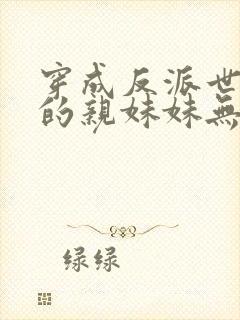 穿成反派世
的親妹妹無
绿绿